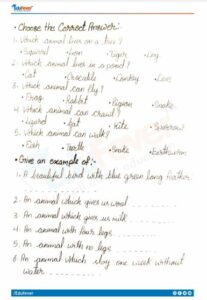 Edufever
• Choose the Correct Answer:-
1. Which animal lives on a tree?
• Squirrel • Lion • Tiger • Dog
2. Which animal lives in a pond?
• Cat • Crocodile • Donkey • Cow
3. Which animal can fly?
• Frog • Rabbit • Pigeon • Snake
4. Which animal can crawl?
• Lizard • Ant • Kite • Sparrow
5. Which animal can walk?
• Fish • Turtle • Snake • Earthworm
• Give an example of:-
1. A beautiful bird with blue green long feather.
2. An animal which gives us wool
3. An animal which gives us milk
4. An animal with four legs
5. An animal with no legs
6. An animal which stay one week without
water
/Edufever